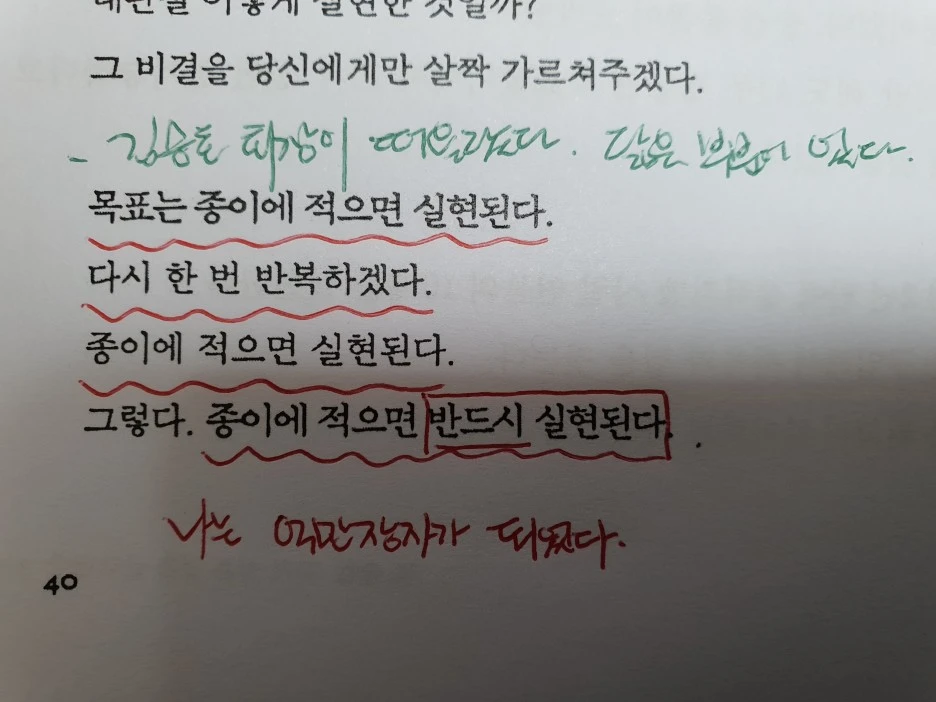 어떻게 실현한 것일까?
그 비결을 당신에게만 살짝 가르쳐주겠다.
- 김승호 회장이 떠올랐다. 닮은 부분이 있다.
목표는 종이에 적으면 실현된다.
다시 한 번 반복하겠다.
종이에 적으면 실현된다.
그렇다. 종이에 적으면 반드시 실현된다.
나는 억만장자가 되었다.
40